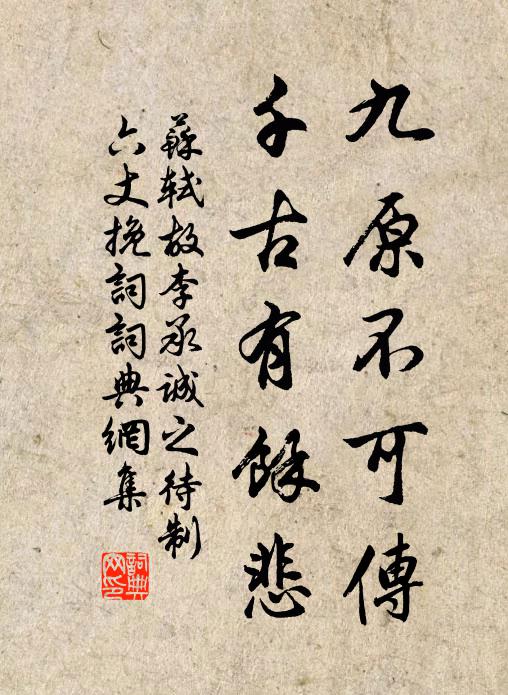 九原不可傳
千古有餘悲
蘇軾故李承誠之待制
六丈挽詞詞典網集
詞典
网印